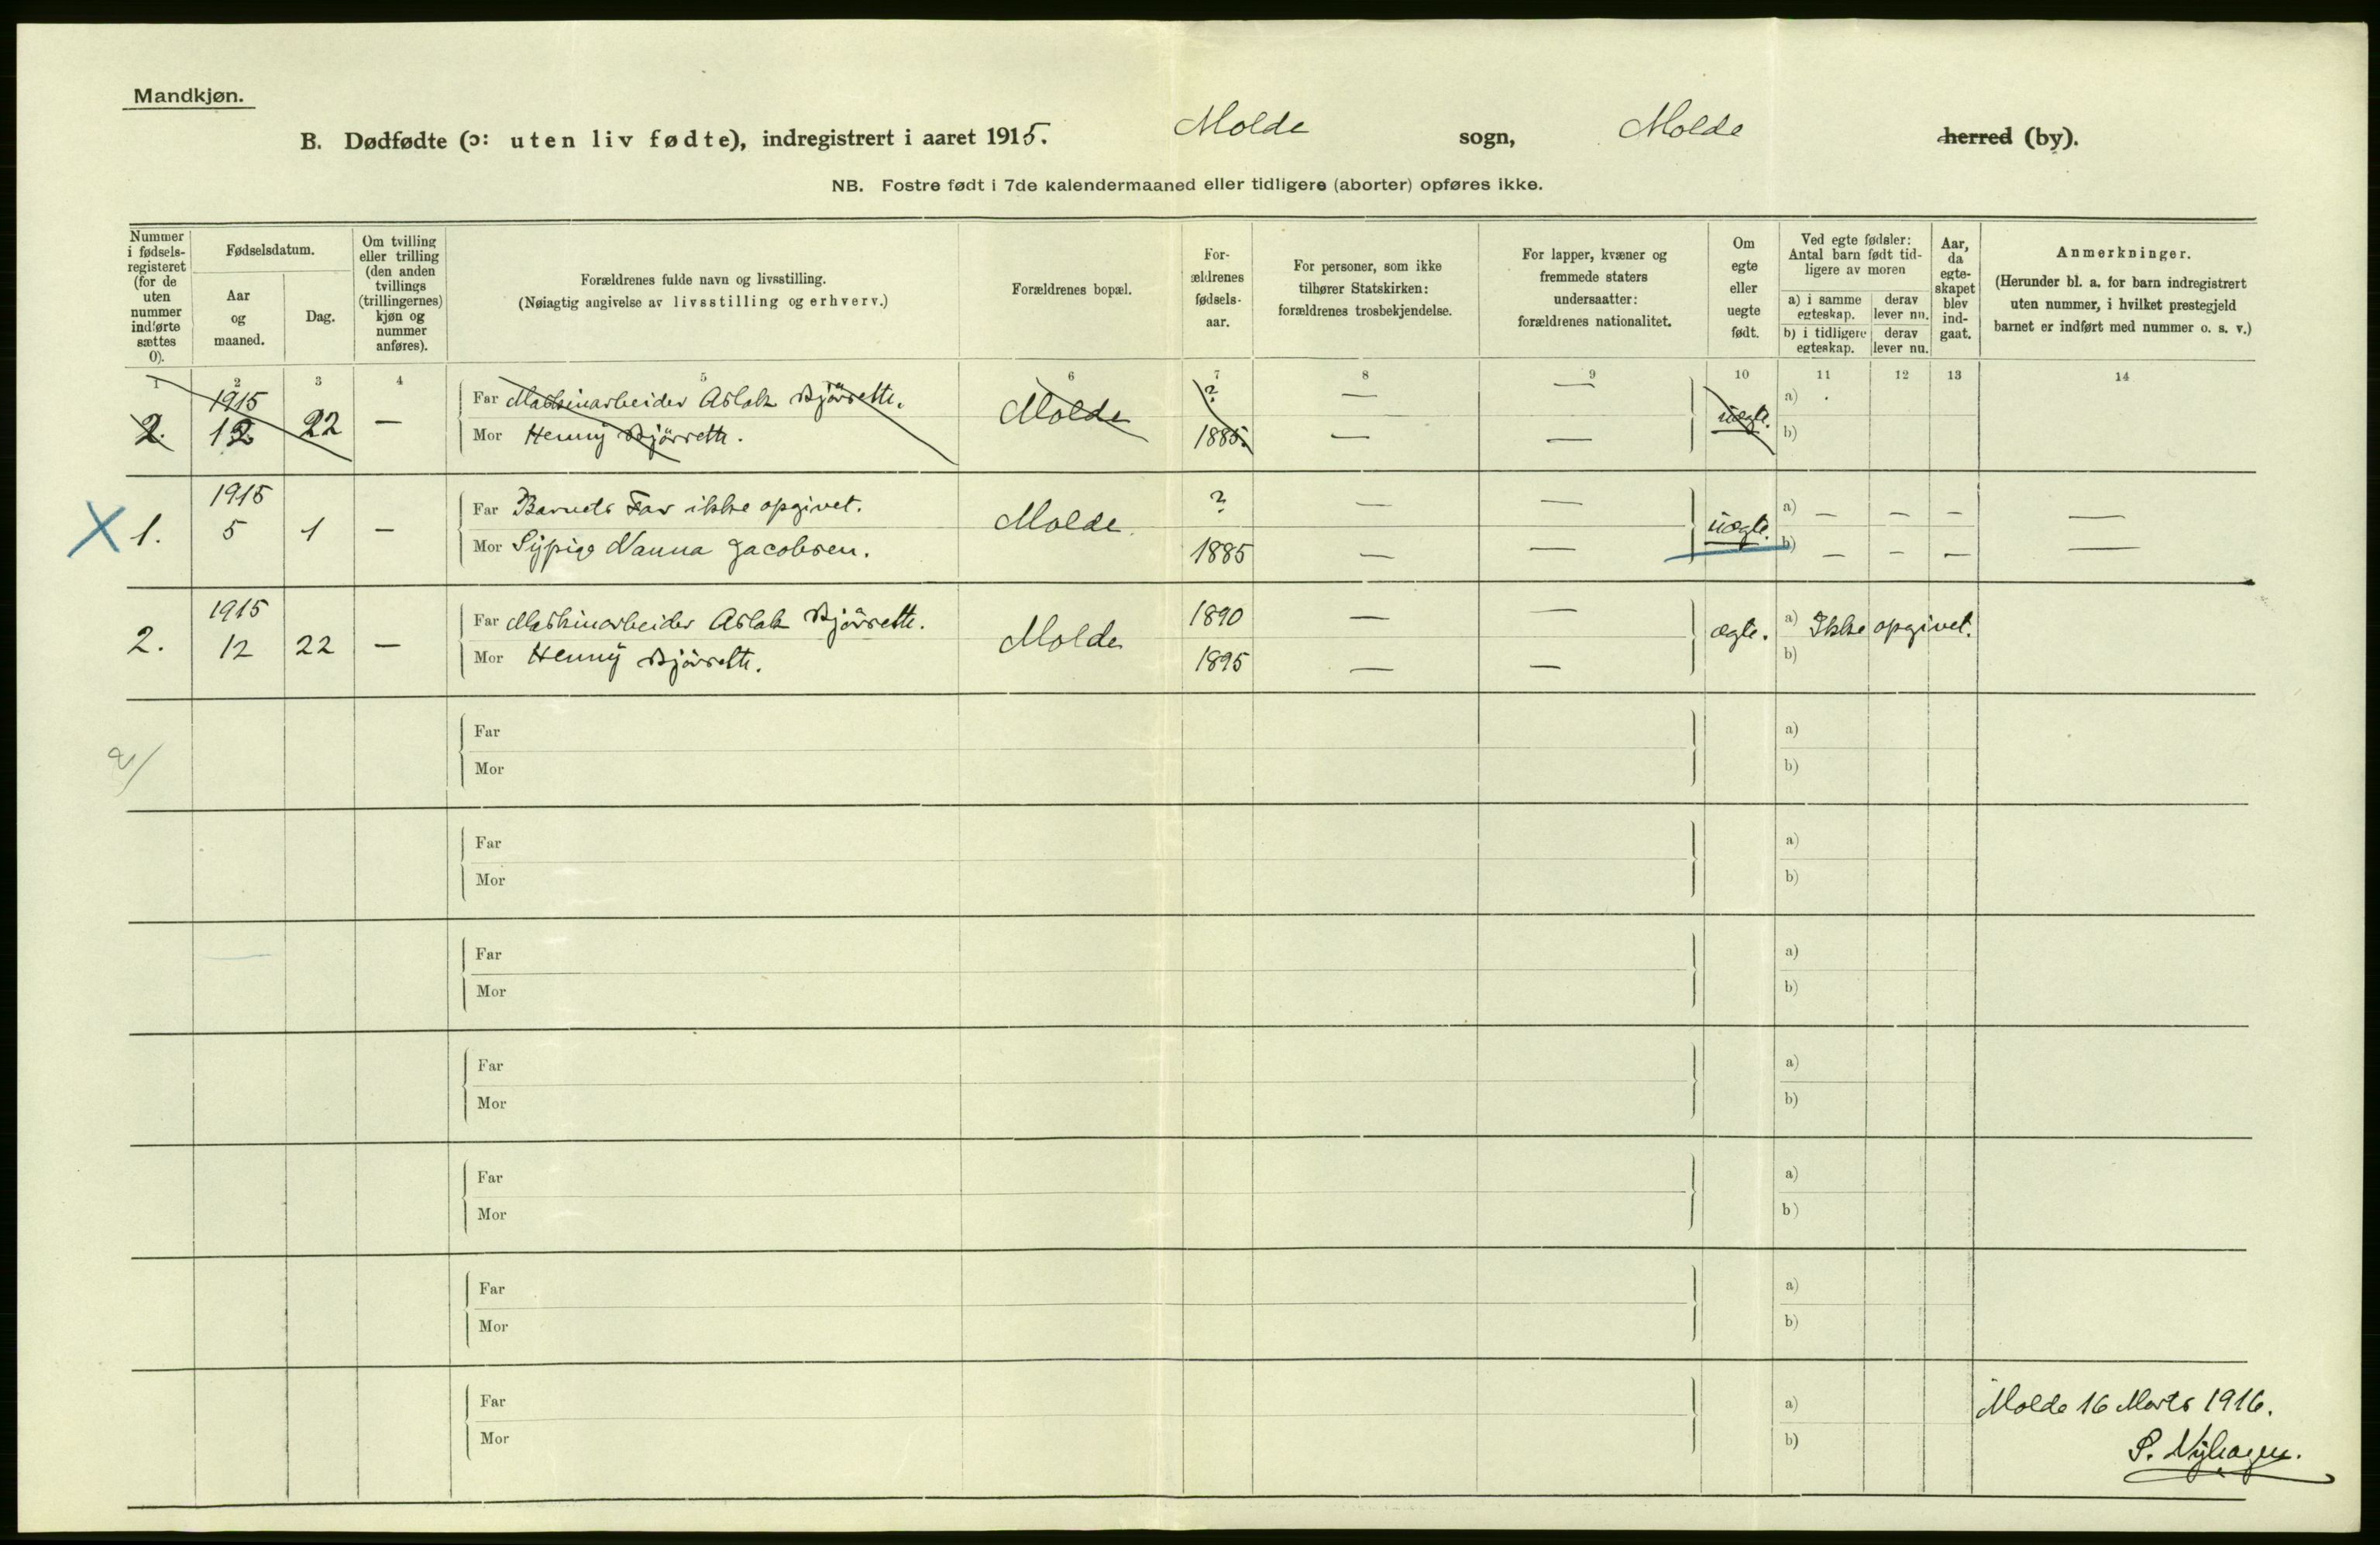 Mandkjøn.
B. Dødfødte (ɔ: uten liv fødte), indregistrert i aaret 1915. Molde sogn, Molde herred (by).
NB. Fostre født i 7de kalendermaaned eller tidligere (aborter) opføres ikke.
Nummer i fødsels-registeret (for de uten nummer indførte sættes 0).
Fødselsdatum.
Aar og maaned.
Dag.
Om tvilling eller trilling (den anden tvillings (trillingernes) kjøn og nummer anføres).
Forældrenes fulde navn og livsstilling.
(Nøiagtig angivelse av livsstilling og erhverv.)
Forældrenes bopæl.
For-ældrenes fødsels-aar.
For personer, som ikke tilhører Statskirken: forældrenes trosbekjendelse.
For lapper, kvæner og fremmede staters undersaatter: forældrenes nationalitet.
Om egte eller uegte født.
Ved egte fødsler: Antal barn født tid-ligere av moren
a) i samme egteskap.
derav lever nu.
b) i tidligere egteskap.
derav lever nu.
Aar, da egte-skapet blev ind-gaat.
Anmerkninger.
(Herunder bl. a. for barn indregistrert uten nummer, i hvilket prestegjeld barnet er indført med nummer o. s. v.)
1 2 3 4 5 6 7 8 9 10 11 12 13 14
1915 Far Maskinarbeider Aslak Bjørsette. ? — — a)
2. 12 22 — Molde uægte.
Mor Henny Bjørsette. 1885. — — b)
1915 Far Barnets Far ikke opgivet. ? — — a) — — — —
X 1. 5 1 — Molde. uægte.
Mor Sypige Nanna Jacobsen. 1885 — — b) — — — —
1915 Far Maskinarbeider Aslak Bjørsette. 1890 — — a) Ikke opgivet.
2. 12 22 — Molde ægte.
Mor Henny Bjørsette. 1895 — — b)
Far a)
2/
Mor b)
Far a)
Mor b)
Far a)
Mor b)
Far a)
Mor b)
Far a)
Mor b)
Far a)
Mor b)
Far a) Molde 16 Marts 1916.
Mor b) S. Nyhagen.